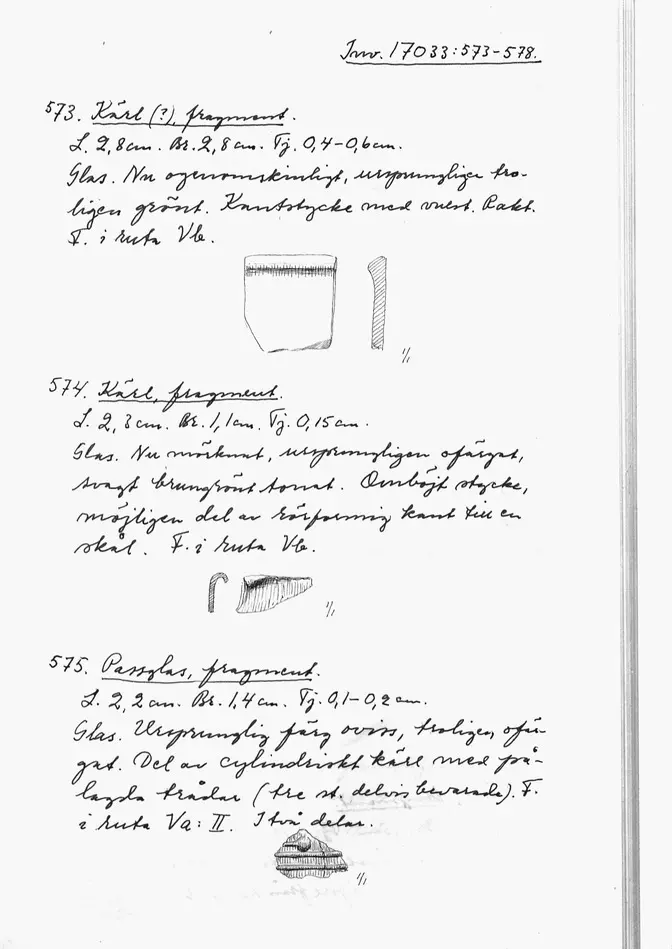 Inv. 17033:573-578.
573. Kärl (?), fragment.
L. 2,8cm. Br. 2,8cm. Tj. 0,4-0,6cm.
Glas. Nu ogenomskinligt, ursprungligen tro-
ligen grönt. Kantstycke med vulst. Rakt.
F. i ruta Vb.
1/1
574. Kärl, fragment.
L. 2,3cm. Br. 1,1cm. Tj. 0,15cm.
Glas. Nu mörknat, ursprungligen ofärgat,
svagt brungrönt tonat. Omböjt stycke,
möjligen del av rörformig kant till en
skål. F. i ruta Vb.
1/1
575. Passglas, fragment.
L. 2,2cm. Br. 1,4cm. Tj. 0,1-0,2cm.
Glas. Ursprunglig färg oviss, troligen ofär-
gat. Del av cylindriskt kärl med på-
lagda trådar (tre st. delvis bevarade). F.
i ruta Va: II. I två delar.
1/1